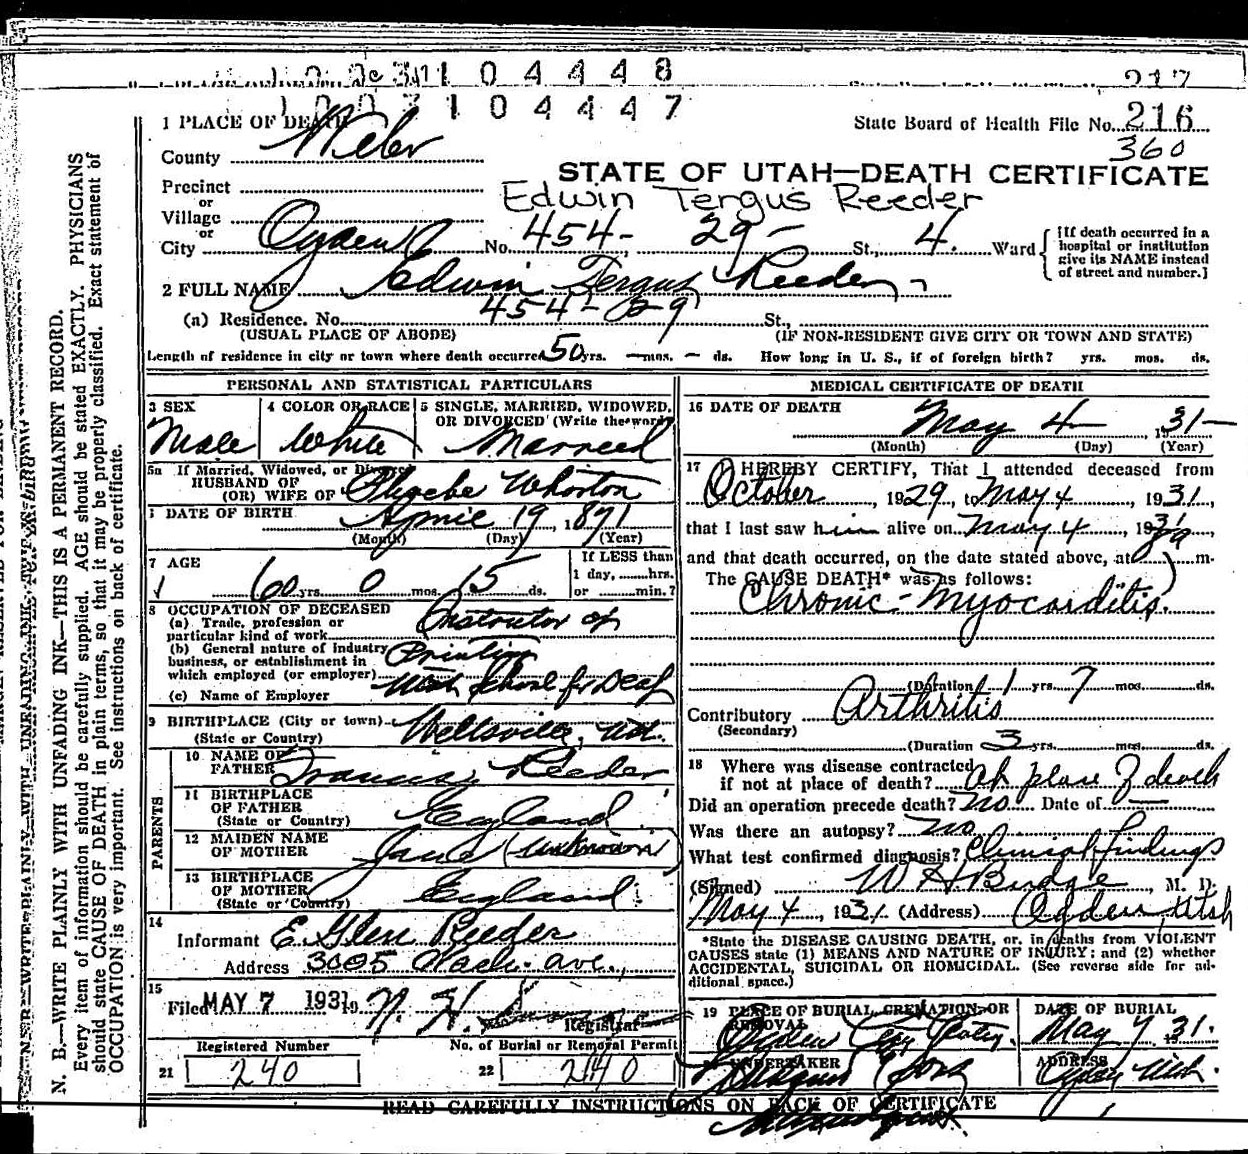 1 0 4 4 4 8
217
1 0 0 3 1 0 4 4 4 7
1 PLACE OF DEATH
State Board of Health File No. 216
360
County Weber
STATE OF UTAH—DEATH CERTIFICATE
Precinct
Edwin Tergus Reeder
or
Village
or
City Ogden No. 454- 29- St., 4. Ward
[If death occurred in a hospital or institution give its NAME instead of street and number.]
2 FULL NAME Edwin Fergus Reeder
(a) Residence. No. 454-29 St.,
(USUAL PLACE OF ABODE) (IF NON-RESIDENT GIVE CITY OR TOWN AND STATE)
Length of residence in city or town where death occurred 50 yrs. — mos. — ds. How long in U. S., if of foreign birth? yrs. mos. ds.
PERSONAL AND STATISTICAL PARTICULARS
3 SEX
Male
4 COLOR OR RACE
White
5 SINGLE, MARRIED, WIDOWED,
OR DIVORCED (Write the word)
Married
5a If Married, Widowed, or Divorced
HUSBAND OF
(OR) WIFE OF Phoebe Whorton
DATE OF BIRTH April 19, 1871
(Month) (Day) (Year)
7 AGE
60 yrs. 0 mos. 15 ds.
If LESS than
1 day, ........hrs.
or ........min.?
8 OCCUPATION OF DECEASED
(a) Trade, profession or
particular kind of work Instructor of
(b) General nature of industry
business, or establishment in Printing
which employed (or employer)
(c) Name of Employer Utah School for Deaf
9 BIRTHPLACE (City or town) Wellsville, Ut.
(State or Country)
PARENTS
10 NAME OF
FATHER Francis Reeder
11 BIRTHPLACE
OF FATHER England
(State or Country)
12 MAIDEN NAME
OF MOTHER Jane (unknown)
13 BIRTHPLACE
OF MOTHER England
(State or Country)
14
Informant E. Glen Reeder
Address 3005 Wash. ave.,
15
Filed MAY 7 1931 19 N. H.
Registrar
Registered Number
21 240
No. of Burial or Removal Permit
22 240
MEDICAL CERTIFICATE OF DEATH
16 DATE OF DEATH
May 4 1931
(Month) (Day) (Year)
17 I HEREBY CERTIFY, That I attended deceased from
October, 1929, to May 4, 1931,
that I last saw him alive on May 4, 1931
and that death occurred, on the date stated above, at m.
The CAUSE DEATH* was as follows:
Chronic-Myocarditis.
(Duration 1 yrs. 7 mos. ds.
Contributory Arthritis
(Secondary)
(Duration 3 yrs. mos. ds.
18 Where was disease contracted
if not at place of death? At place of death
Did an operation precede death? No Date of —
Was there an autopsy? No
What test confirmed diagnosis? Clinical findings
(Signed) W H Budge, M. D.
May 4, 1931 (Address) Ogden Utah
*State the DISEASE CAUSING DEATH, or, in deaths from VIOLENT
CAUSES state (1) MEANS AND NATURE OF INJURY; and (2) whether
ACCIDENTAL, SUICIDAL OR HOMICIDAL. (See reverse side for ad-
ditional space.)
19 PLACE OF BURIAL, CREMATION, OR
REMOVAL
Ogden City
DATE OF BURIAL
May 7 1931.
UNDERTAKER
ADDRESS
Ogden Utah.
READ CAREFULLY INSTRUCTIONS ON BACK OF CERTIFICATE
N. B.—WRITE PLAINLY WITH UNFADING INK—THIS IS A PERMANENT RECORD.
Every item of information should be carefully supplied. AGE should be stated EXACTLY. PHYSICIANS
should state CAUSE OF DEATH in plain terms, so that it may be properly classified. Exact statement of
OCCUPATION is very important. See instructions on back of certificate.